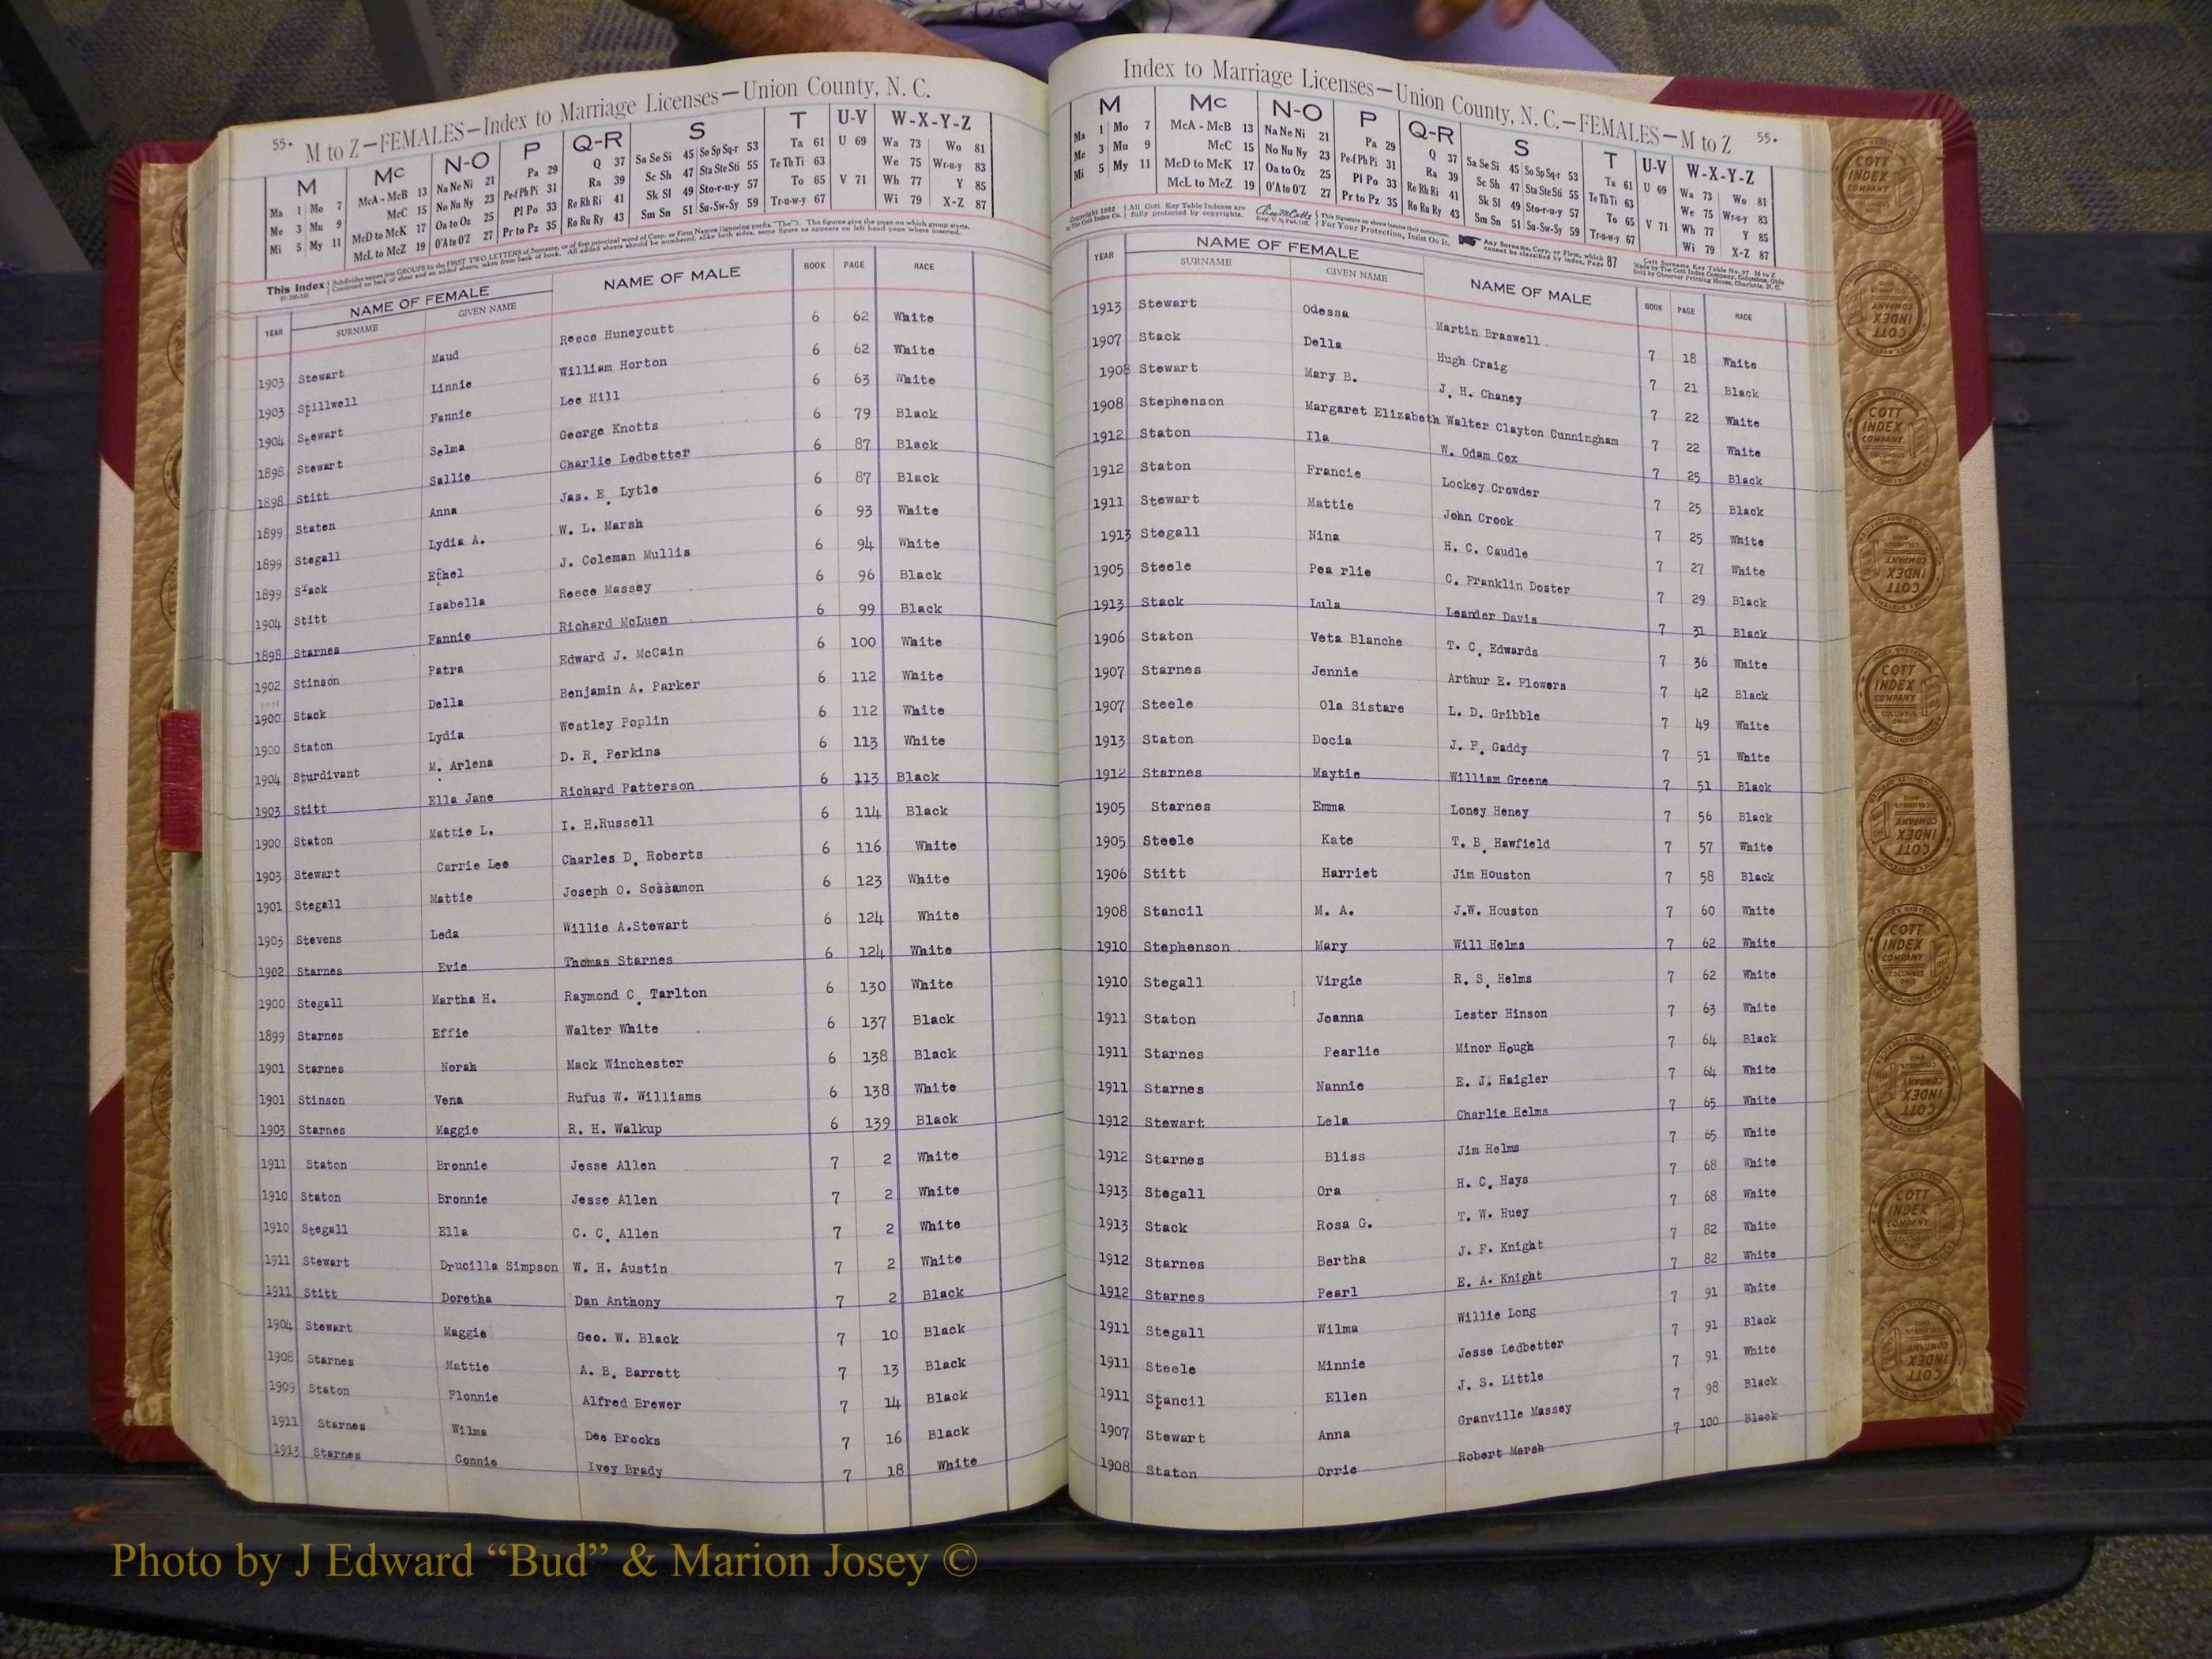 55. M to Z—FEMALES—Index to Marriage Licenses—Union County, N. C.
M Mc N-O P Q-R S T U-V W-X-Y-Z
Ma 1 Mo 7 McA - McB 13 Na Ne Ni 21 Pa 29 Q 37 Sa Se Si 45 So Sp Sq-r 53 Ta 61 U 69 Wa 73 Wo 81
Me 3 Mu 9 McC 15 No Nu Ny 23 Pe-f Ph Pi 31 Ra 39 Sc Sh 47 Sta Ste Sti 55 Te Th Ti 63 We 75 Wr-u-y 83
Mi 5 My 11 McD to McK 17 Oa to Oz 25 Pl Po 33 Re Rh Ri 41 Sk Sl 49 Sto-r-u-y 57 To 65 V 71 Wh 77 Y 85
McL to McZ 19 O'A to O'Z 27 Pr to Pz 35 Ro Ru Ry 43 Sm Sn 51 Su-Sw-Sy 59 Tr-u-w-y 67 Wi 79 X-Z 87
This Index Subdivides names into GROUPS by the FIRST TWO LETTERS of Surname, or of first principal word of Corp. or Firm Names (ignoring prefix "The"). The figures give the page on which group starts.
Continued on back of sheet and on added sheets, taken from back of book. All added sheets should be numbered, alike both sides, same figure as appears on left hand page where inserted.
YEAR NAME OF FEMALE SURNAME GIVEN NAME NAME OF MALE BOOK PAGE RACE
1903 Stewart Maud Reece Huneycutt 6 62 White
1903 Stillwell Linnie William Horton 6 62 White
1904 Stewart Fannie Lee Hill 6 63 White
1898 Stewart Selma George Knotts 6 79 Black
1898 Stitt Sallie Charlie Ledbetter 6 87 Black
1899 Staten Anna Jas. E. Lytle 6 87 Black
1899 Stegall Lydia A. W. L. Marsh 6 93 White
1899 Stack Ethel J. Coleman Mullis 6 94 White
1904 Stitt Isabella Reece Massey 6 96 Black
1898 Starnes Fannie Richard McLuen 6 99 Black
1902 Stinson Patra Edward J. McCain 6 100 White
1900 Stack Della Benjamin A. Parker 6 112 White
1900 Staton Lydia Westley Poplin 6 112 White
1904 Sturdivant M. Arlena D. R. Perkins 6 113 White
1903 Stitt Ella Jane Richard Patterson 6 113 Black
1900 Staton Mattie L. I. H.Russell 6 114 Black
1903 Stewart Carrie Lee Charles D. Roberts 6 116 White
1901 Stegall Mattie Joseph O. Sossamon 6 123 White
1903 Stevens Leda Willie A.Stewart 6 124 White
1902 Starnes Evie Thomas Starnes 6 124 White
1900 Stegall Martha H. Raymond C. Tarlton 6 130 White
1899 Starnes Effie Walter White 6 137 Black
1901 Starnes Norah Mack Winchester 6 138 Black
1901 Stinson Vena Rufus W. Williams 6 138 White
1903 Starnes Maggie R. H. Walkup 6 139 Black
1911 Staton Bronnie Jesse Allen 7 2 White
1910 Staton Bronnie Jesse Allen 7 2 White
1910 Stegall Ella C. C. Allen 7 2 White
1911 Stewart Drucilla Simpson W. H. Austin 7 2 White
1911 Stitt Doretha Dan Anthony 7 2 Black
1904 Stewart Maggie Geo. W. Black 7 10 Black
1908 Starnes Mattie A. B. Barrett 7 13 Black
1909 Staton Flonnie Alfred Brewer 7 14 Black
1911 Starnes Wilma Dee Brooks 7 16 Black
1913 Starnes Connie Ivey Brady 7 18 White
Index to Marriage Licenses—Union County, N. C.—FEMALES—M to Z 55.
M Mc N-O P Q-R S T U-V W-X-Y-Z
Ma 1 Mo 7 McA - McB 13 Na Ne Ni 21 Pa 29 Q 37 Sa Se Si 45 So Sp Sq-r 53 Ta 61 U 69 Wa 73 Wo 81
Me 3 Mu 9 McC 15 No Nu Ny 23 Pe-f Ph Pi 31 Ra 39 Sc Sh 47 Sta Ste Sti 55 Te Th Ti 63 We 75 Wr-u-y 83
Mi 5 My 11 McD to McK 17 Oa to Oz 25 Pl Po 33 Re Rh Ri 41 Sk Sl 49 Sto-r-u-y 57 To 65 V 71 Wh 77 Y 85
McL to McZ 19 O'A to O'Z 27 Pr to Pz 35 Ro Ru Ry 43 Sm Sn 51 Su-Sw-Sy 59 Tr-u-w-y 67 Wi 79 X-Z 87
Copyright 1932 by The Cott Index Co. All Cott Key Table Indexes are fully protected by copyrights. This Signature on sheets insures their correctness. For Your Protection, Insist On It. Any Surname, Corp. or Firm, which cannot be classified by index, Page 87
Cott Surname Key Table No. 97 M to Z
Made by The Cott Index Company, Columbus, Ohio
Sold by Observer Printing House, Charlotte, N. C.
YEAR NAME OF FEMALE SURNAME GIVEN NAME NAME OF MALE BOOK PAGE RACE
1913 Stewart Odessa Martin Braswell 7 18 White
1907 Stack Della Hugh Craig 7 21 Black
1908 Stewart Mary B. J. H. Chaney 7 22 White
1908 Stephenson Margaret Elizabeth Walter Clayton Cunningham 7 22 White
1912 Staton Ila W. Odam Cox 7 25 Black
1912 Staton Francie Lockey Crowder 7 25 Black
1911 Stewart Mattie John Crook 7 25 White
1913 Stegall Nina H. C. Caudle 7 27 White
1905 Steele Pea rlie C. Franklin Doster 7 29 Black
1913 Stack Lula Leander Davis 7 31 Black
1906 Staton Veta Blanche T. C. Edwards 7 36 White
1907 Starnes Jennie Arthur E. Flowers 7 42 Black
1907 Steele Ola Sistare L. D. Gribble 7 49 White
1913 Staton Docia J. F. Gaddy 7 51 White
1912 Starnes Maytie William Greene 7 51 Black
1905 Starnes Emma Loney Heney 7 56 Black
1905 Steele Kate T. B. Hawfield 7 57 White
1906 Stitt Harriet Jim Houston 7 58 Black
1908 Stancil M. A. J.W. Houston 7 60 White
1910 Stephenson Mary Will Helms 7 62 White
1910 Stegall Virgie R. S. Helms 7 62 White
1911 Staton Joanna Lester Hinson 7 63 White
1911 Starnes Pearlie Minor Hough 7 64 Black
1911 Starnes Nannie E. J. Haigler 7 64 White
1912 Stewart Lela Charlie Helms 7 65 White
1912 Starnes Bliss Jim Helms 7 65 White
1913 Stegall Ora H. C. Hays 7 68 White
1913 Stack Rosa G. T. W. Huey 7 68 White
1912 Starnes Bertha J. F. Knight 7 82 White
1912 Starnes Pearl E. A. Knight 7 82 White
1911 Stegall Wilma Willie Long 7 91 White
1911 Steele Minnie Jesse Ledbetter 7 91 Black
1911 Stancil Ellen J. S. Little 7 91 White
1907 Stewart Anna Granville Massey 7 98 Black
1908 Staton Orrie Robert Marsh 7 100 Black
COTT INDEX COMPANY
Photo by J Edward “Bud” & Marion Josey ©